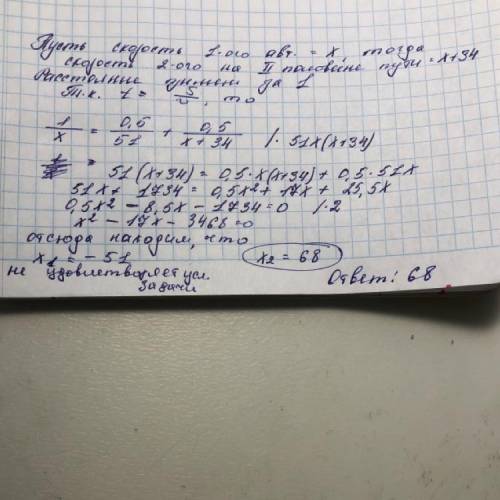 Пусть скорость 1-ого авт. = x, тогда
скорость 2-ого на II половине пути = x+34
Расстояние примем за 1
Т.к. t = S/v, то
1/x = 0,5/51 + 0,5/(x+34) /· 51x(x+34)
51(x+34) = 0,5·x(x+34) + 0,5·51x
51x + 1734 = 0,5x² + 17x + 25,5x
0,5x² - 8,5x - 1734 = 0 /·2
x² - 17x - 3468 = 0
отсюда находим, что
x₁ = -51 x₂ = 68
не удовлетворяет усл. Ответ: 68
задачи